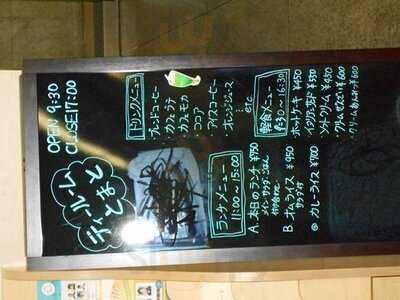 OPEN 9:30
CLOSE 17:00
ティールーム
とまと
ドリンクメニュー
・ブレンドコーヒー
・カフェラテ
・カフェモカ
・ココア
・アイスコーヒー
・オレンジジュース
etc
軽食メニュー
9:30〜16:30
・ホットケーキ ¥450
・イングリッシュマフィン ¥550
・ソフトクリーム ¥450
・クリームぜんざい ¥600
・クリームあんみつ ¥600
ランチメニュー
11:00〜15:00
A. 本日のランチ ¥750
B. オムライス ¥950
サラダ付
◎ カレーライス ¥700